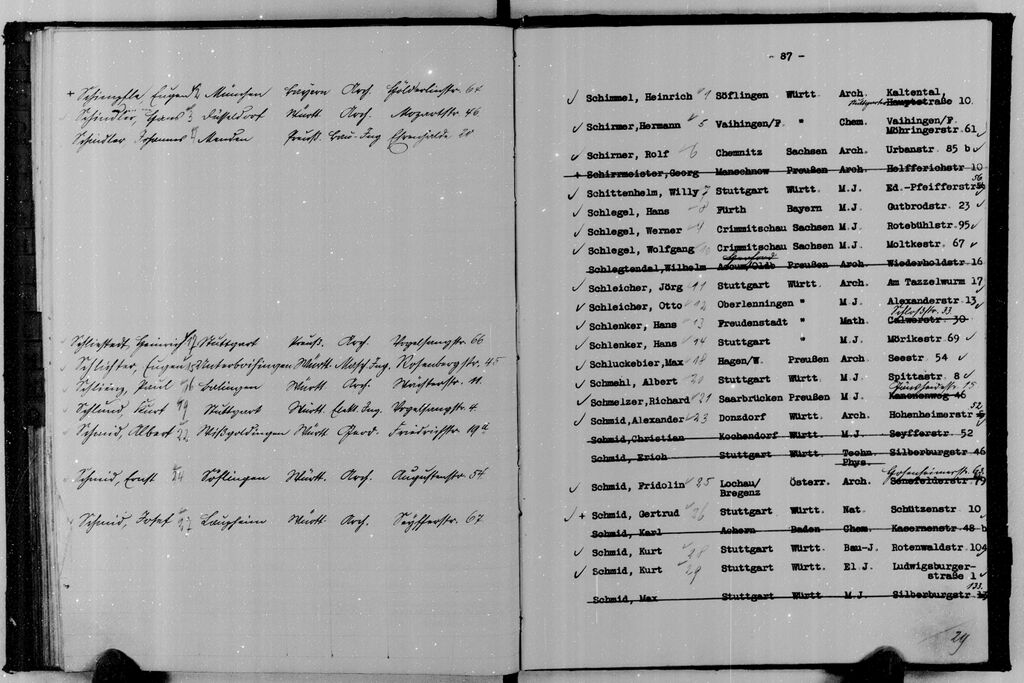 + Schimpfle, Eugen 2 München Bayern Arch. Hölderlinstr. 64
Schindler, Hans 3 Düsseldorf Württ. Arch. Mozartstr. 46
Schindler Johannes Menden Preuß. Bau-Ing Ehrenhalde 20
Schliestedt, Heinrich Stuttgart Preuß. Arch. Vogelsangstr. 66
Schlichter, Eugen 15 Unterboihingen Württ. Masch.Ing. Rosenbergstr. 45
Schlienz, Paul 16 Balingen Württ. Arch. 11.
Schlund, Kurt 19 Stuttgart Württ. Elekt. Ing. Vogelsangstr. 4.
Schmid, Albert 22 Wißgoldingen Württ. Geod. Friedrichstr. 19a
Schmid, Ernst 24 Söflingen Württ. Arch. Augustenstr. 54.
Schmid, Josef 27 Laupheim Württ. Arch. Senefelderstr. 67
- 87 -
Schimmel, Heinrich 1 Söflingen Württ. Arch. Kaltental,
Hauptstraße 10.
Schirmer, Hermann 5 Vaihingen/F. " Chem. Vaihingen/F.
Möhringerstr. 61
Schirner, Rolf 6 Chemnitz Sachsen Arch. Urbanstr. 85 b
+ Schirrmeister, Georg Manschnow Preußen Arch. Helfferichstr 10
56
Schittenhelm, Willy 7 Stuttgart Württ. M.J. Ed.-Pfeifferstr
Schlegel, Hans 8 Fürth Bayern M.J. Gutbrodstr. 23
Schlegel, Werner 4 Crimmitschau Sachsen M.J. Rotebühlstr. 95
Schlegel, Wolfgang 10 Crimmitschau Sachsen M.J. Moltkestr. 67
Schlegtendal, Wilhelm Preußen Arch. Wiederholdstr 16
Schleicher, Jörg 11 Stuttgart Württ. Arch. Am Tazzelwurm 17
Schleicher, Otto 12 Oberlenningen " M.J. Alexanderstr. 13
Schloßstr. 33
Schlenker, Hans 13 Freudenstadt " Math. Calwerstr. 30
Schlenker, Hans 14 Stuttgart " M.J. Mörikestr. 69
Schluckebier, Max 18 Hagen/W. Preußen Arch. Seestr. 54
Schmehl, Albert 20 Stuttgart Württ. M.J. Spittastr. 8
Schmelzer, Richard 21 Saarbrücken Preußen M.J. Kanonenweg 46
52
Schmid, Alexander 23 Donzdorf Württ. Arch. Hohenheimerstr
Schmid, Christian Kochendorf Württ. M.J. Seyfferstr. 52
Schmid, Erich Stuttgart Württ. Techn. Silberburgstr 46
Phys.
Schmid, Fridolin 25 Lochau/ Österr. Arch. Senefelderstr 79
Bregenz
+ Schmid, Gertrud 26 Stuttgart Württ. Nat. Schützenstr 10
Schmid, Karl Achern Baden Chem. Kasernenstr 48 b
Schmid, Kurt 28 Stuttgart Württ. Bau-J. Rotenwaldstr. 104
Schmid, Kurt 29 Stuttgart Württ. El J. Ludwigsburger-
straße 1
133.
Schmid, Max Stuttgart Württ M.J Silberburgstr
29